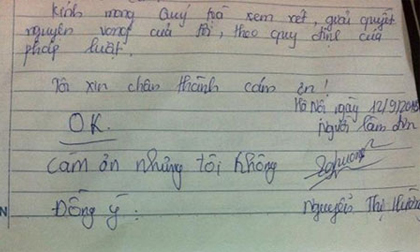 Kính mong Quý toà xem xét, giải quyết
nguyện vọng của tôi, theo quy định của
pháp luật.
Tôi xin chân thành cảm ơn!
Hà Nội ngày 12/9/201
OK.
Người làm đơn
Cảm ơn nhưng tôi không
Đồng ý:
Nguyễn Thị Hườn
N